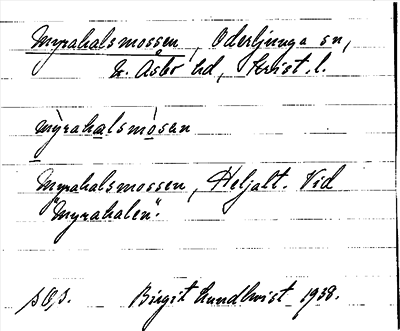 Myrahalsmossen, Oderljunga sn,
N. Åsbo hd, Krist. l.
mỳrahalsmòsan
Myrahalsmossen, Heljalt. Vid
"Myrahalen".
s Ö, s. Birgit Lundkvist 1938.